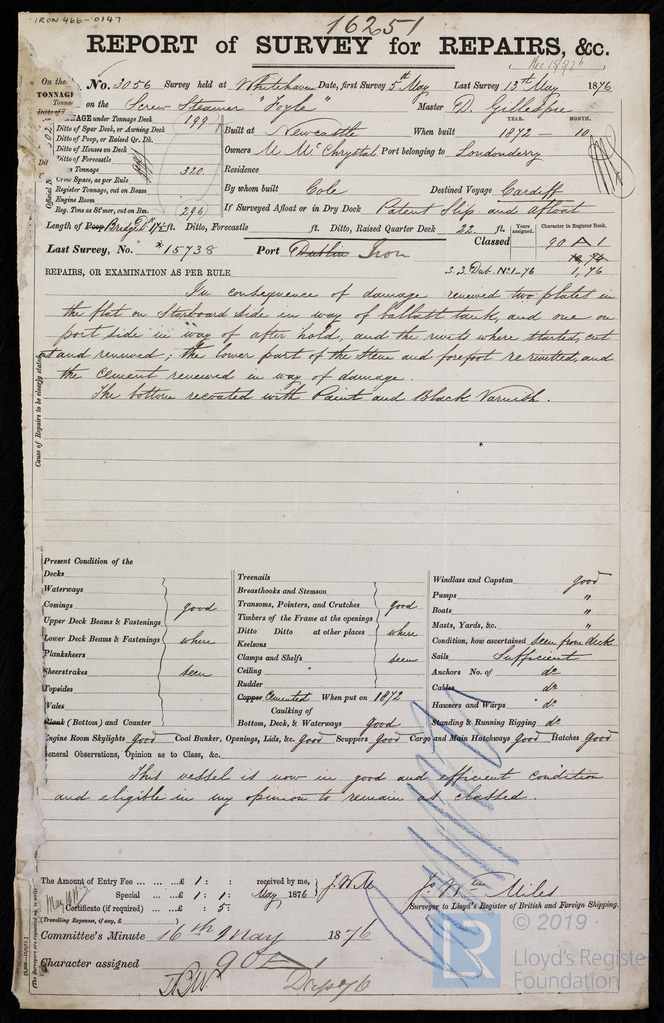 IRON 466-0147
16251
REPORT of SURVEY for REPAIRS, &c.
No. 3056 Survey held at Whitehaven Date, first Survey 5th May Last Survey 13th May 1876
on the Screw Steamer "Foyle" Master D. Gillespie
On the
TONNAGE under Tonnage Deck 199
Ditto of Spar Deck, or Awning Deck
Ditto of Poop, or Raised Qr. Dk.
Ditto of Houses on Deck
Ditto of Forecastle
Tonnage 320
Crew Space, as per Rule
Register Tonnage, cut on Beam
Engine Room
Reg. Tons as St'mer, cut on Bm. 296
YEAR. MONTH.
Built at Newcastle When built 1872 - 10
Owners M McChrystal Port belonging to Londonderry
Residence
By whom built Cole Destined Voyage Cardiff
If Surveyed Afloat or in Dry Dock Patent Slip and Afloat
Length of Poop Bridge Dk 17½ ft. Ditto, Forecastle ft. Ditto, Raised Quarter Deck 22 ft.
Years assigned. Character in Register Book.
Last Survey, No. *15738 Port Dublin Iron Classed 90 A 1
1,76
REPAIRS, OR EXAMINATION AS PER RULE S.S. Dub. No.1-76
In consequence of damage renewed two plates in
the flat on Starboard side in way of ballast tank, and one on
port side in way of after hold, and the rivets where started, cut
out and renewed; the lower part of the Stem and forefoot re-rivetted, and
the cement renewed in way of damage.
The bottom recoated with Paint and Black Varnish.
Cause of Repairs to be clearly stated
Present Condition of the
Decks
Waterways
Comings good
Upper Deck Beams & Fastenings
Lower Deck Beams & Fastenings where
Planksheers
Sheerstrakes seen
Topsides
Wales
Plank (Bottom) and Counter
Treenails
Breasthooks and Stemson
Transoms, Pointers, and Crutches good
Timbers of the Frame at the openings
Ditto Ditto at other places where
Keelsons
Clamps and Shelfs seen
Ceiling "
Rudder
Copper Cemented When put on 1872
Caulking of
Bottom, Deck, & Waterways good
Windlass and Capstan good
Pumps "
Boats "
Masts, Yards, &c. "
Condition, how ascertained seen from deck
Sails Sufficient
Anchors No. of do
Cables do
Hawsers and Warps do
Standing & Running Rigging do
Engine Room Skylights Good Coal Bunker, Openings, Lids, &c. Good Scuppers Good Cargo and Main Hatchways Good Hatches Good
General Observations, Opinion as to Class, &c.
This vessel is now in good and efficient condition
and eligible in my opinion to remain as classed.
The Amount of Entry Fee ... ... ... £ 1 : : received by me,
Special ... ... £ 1 : 1 : May 1876 J.W.M
Certificate (if required) ... £ : 5 :
(Travelling Expenses, if any, £ )
Jo Wm Miles
Surveyor to Lloyd's Register of British and Foreign Shipping.
Committee's Minute 16th May 1876
Character assigned 90 A
© 2019
LR
Lloyd's Register
Foundation